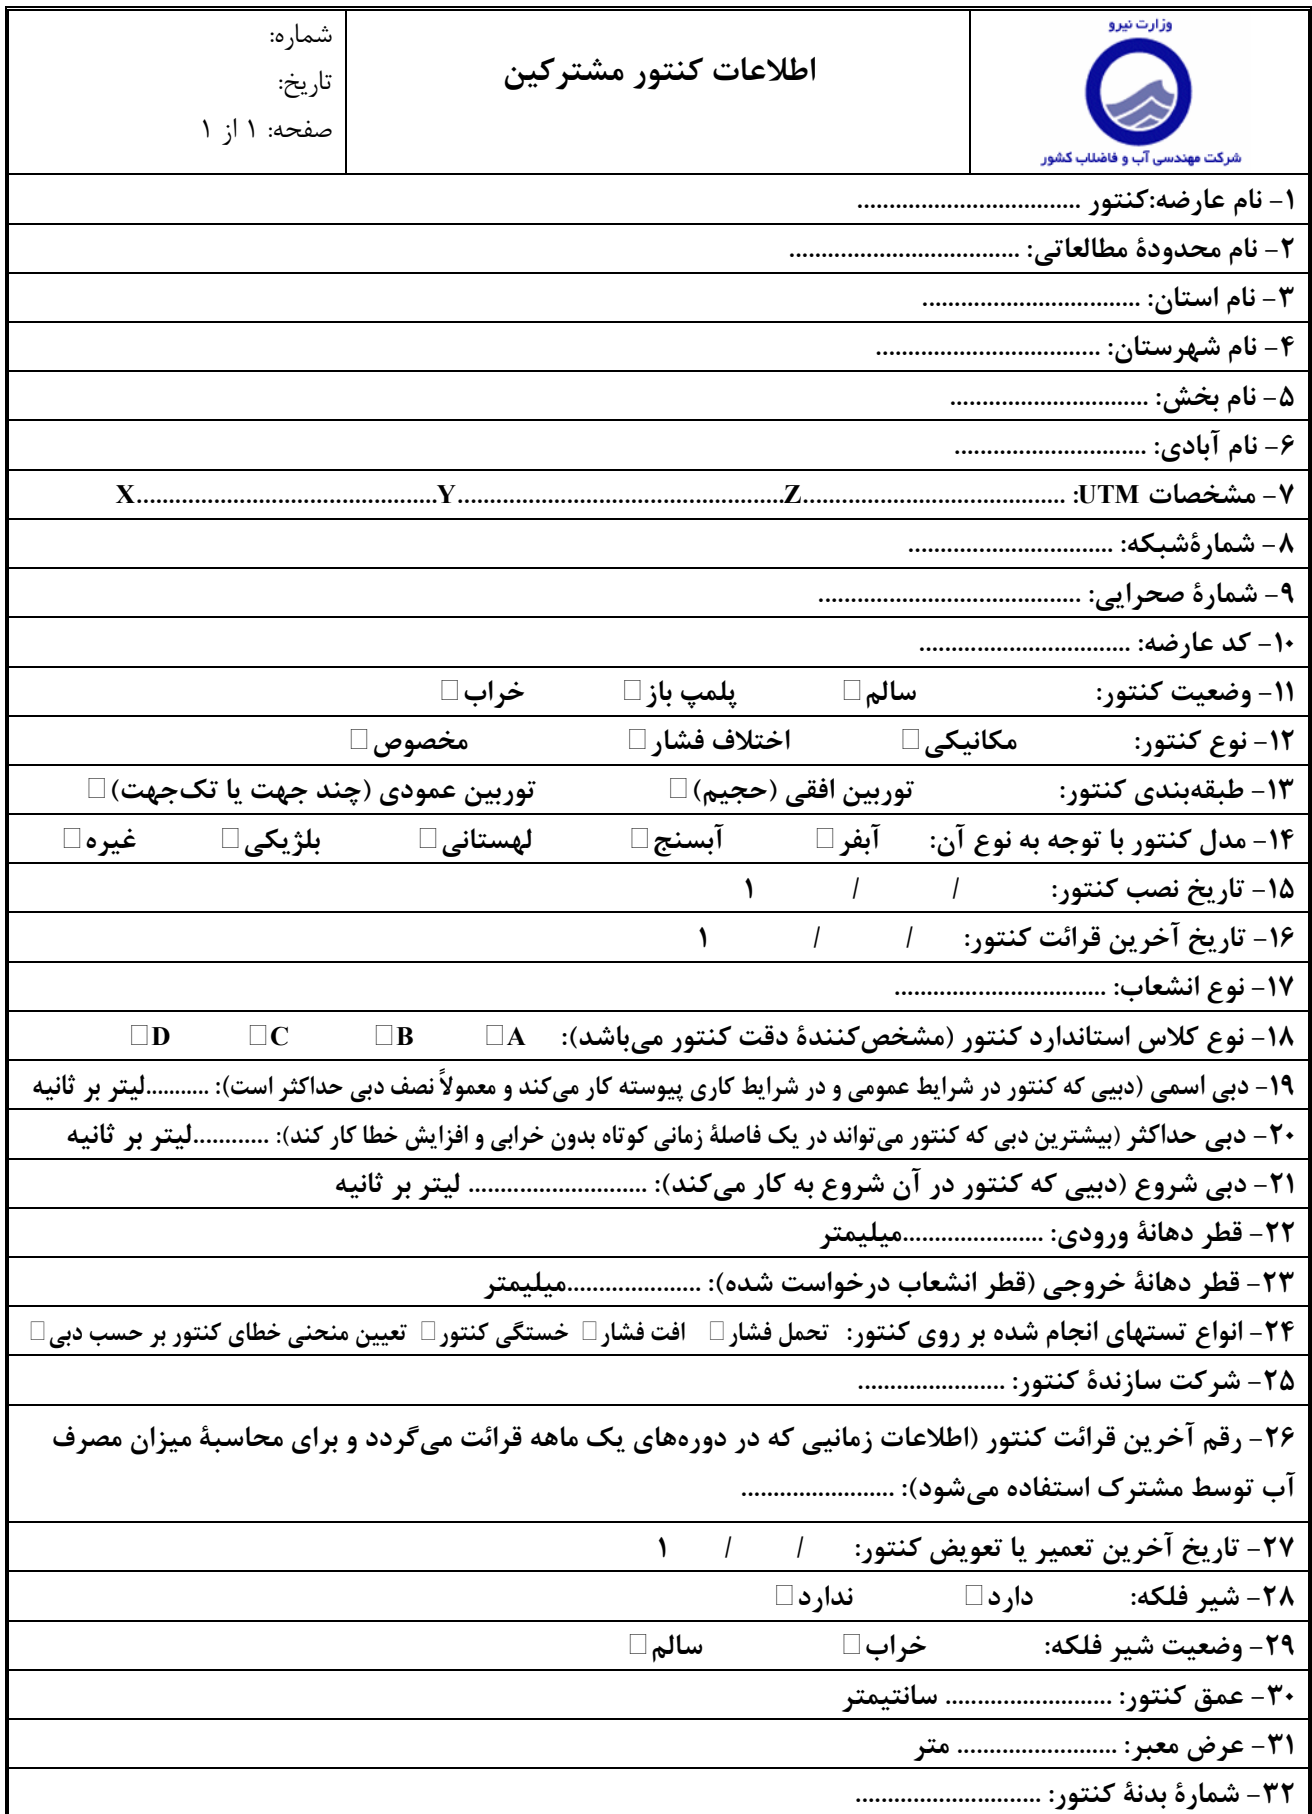 وزارت نیرو
شرکت مهندسی آب و فاضلاب کشور
اطلاعات کنتور مشترکین
شماره:
تاریخ:
صفحه: ۱ از ۱
۱- نام عارضه:کنتور ...................................
۲- نام محدودۀ مطالعاتی: ....................................
۳- نام استان: ..................................
۴- نام شهرستان: ...................................
۵- نام بخش: ...............................
۶- نام آبادی: ..............................
۷- مشخصات UTM: .........................................Z...................................................Y...............................................X
۸- شمارۀشبکه: ................................
۹- شمارۀ صحرایی: .........................................
۱۰- کد عارضه: .................................
۱۱- وضعیت کنتور: سالم□ پلمپ باز□ خراب□
۱۲- نوع کنتور: مکانیکی□ اختلاف فشار□ مخصوص□
۱۳- طبقه‌بندی کنتور: توربین افقی (حجیم)□ توربین عمودی (چند جهت یا تک‌جهت)□
۱۴- مدل کنتور با توجه به نوع آن: آبفر□ آبسنج□ لهستانی□ بلژیکی□ غیره□
۱۵- تاریخ نصب کنتور: / / ۱
۱۶- تاریخ آخرین قرائت کنتور: / / ۱
۱۷- نوع انشعاب: .................................
۱۸- نوع کلاس استاندارد کنتور (مشخص‌کنندۀ دقت کنتور می‌باشد): A□ B□ C□ D□
۱۹- دبی اسمی (دبیی که کنتور در شرایط عمومی و در شرایط کاری پیوسته کار می‌کند و معمولاً نصف دبی حداکثر است): ...........لیتر بر ثانیه
۲۰- دبی حداکثر (بیشترین دبی که کنتور می‌تواند در یک فاصلۀ زمانی کوتاه بدون خرابی و افزایش خطا کار کند): ............لیتر بر ثانیه
۲۱- دبی شروع (دبیی که کنتور در آن شروع به کار می‌کند): ............................ لیتر بر ثانیه
۲۲- قطر دهانۀ ورودی: ......................میلیمتر
۲۳- قطر دهانۀ خروجی (قطر انشعاب درخواست شده): .....................میلیمتر
۲۴- انواع تستهای انجام شده بر روی کنتور: تحمل فشار□ افت فشار□ خستگی کنتور□ تعیین منحنی خطای کنتور بر حسب دبی□
۲۵- شرکت سازندۀ کنتور: .......................
۲۶- رقم آخرین قرائت کنتور (اطلاعات زمانیی که در دوره‌های یک ماهه قرائت می‌گردد و برای محاسبۀ میزان مصرف
آب توسط مشترک استفاده می‌شود): ........................
۲۷- تاریخ آخرین تعمیر یا تعویض کنتور: / / ۱
۲۸- شیر فلکه: دارد□ ندارد□
۲۹- وضعیت شیر فلکه: خراب□ سالم□
۳۰- عمق کنتور: .......................... سانتیمتر
۳۱- عرض معبر: ......................... متر
۳۲- شمارۀ بدنۀ کنتور: .............................